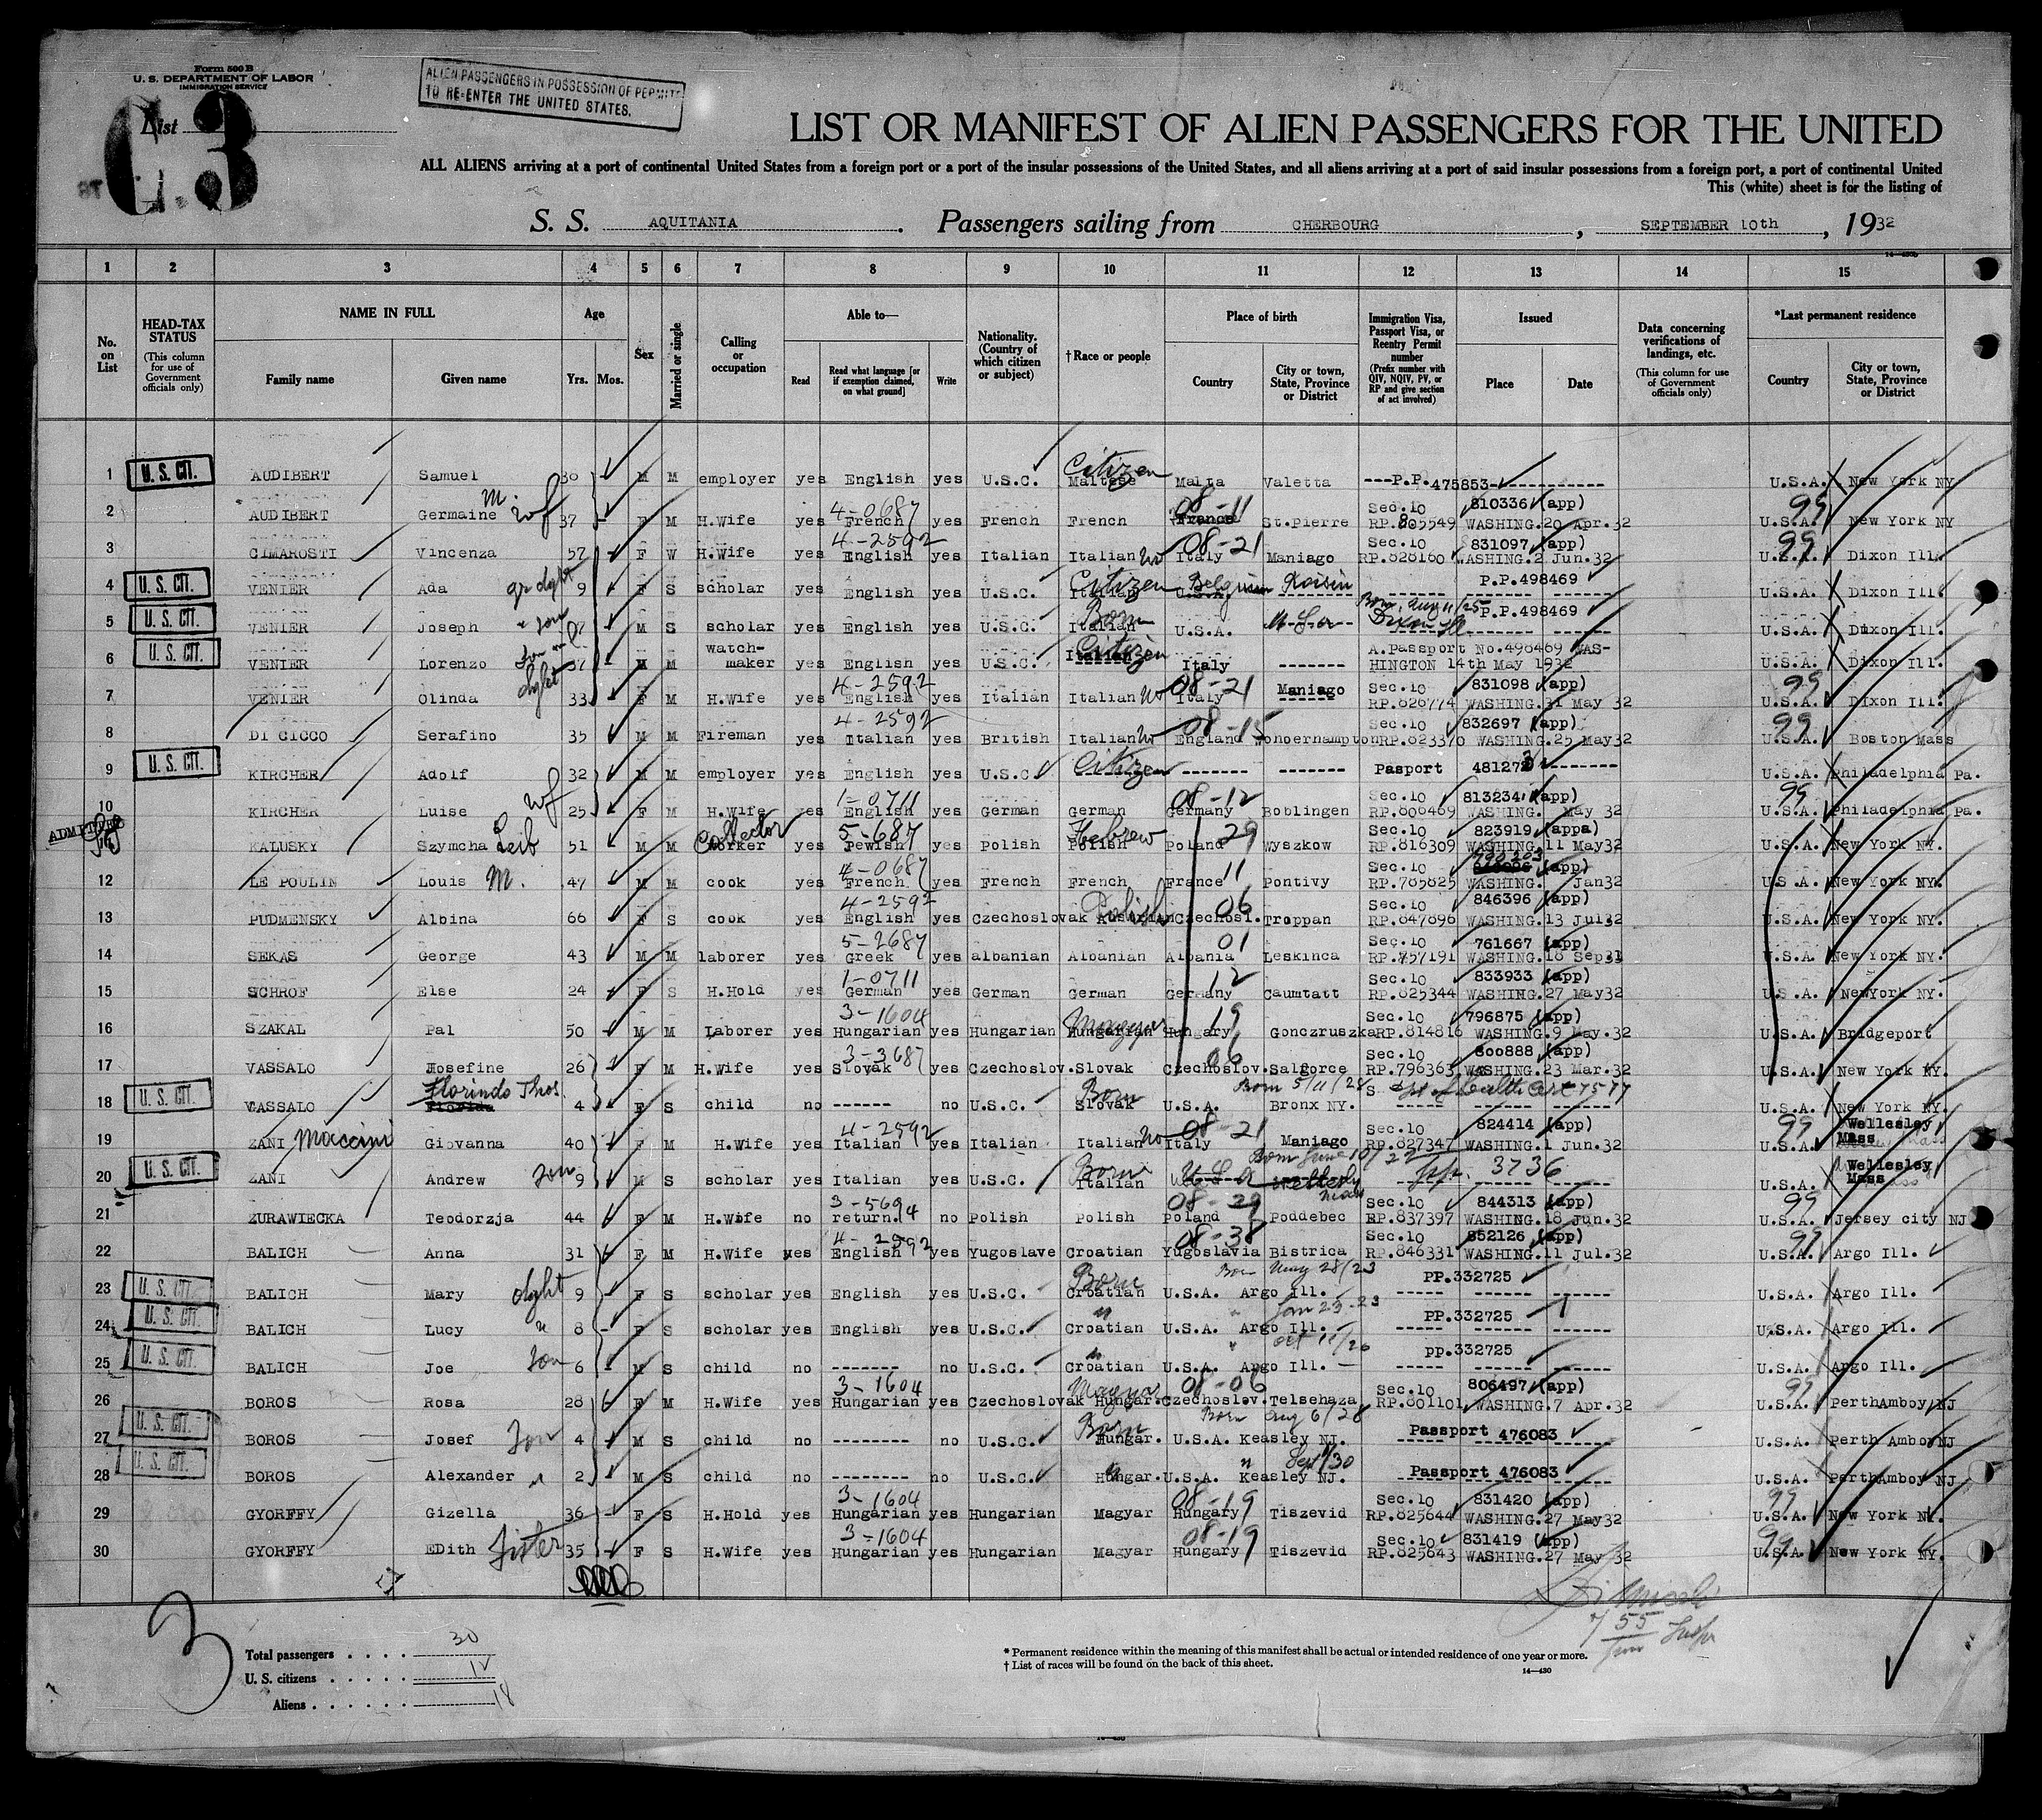 Form 500 B
U. S. DEPARTMENT OF LABOR
IMMIGRATION SERVICE
List
C.3
ALIEN PASSENGERS IN POSSESSION OF PERMITS
TO RE-ENTER THE UNITED STATES.
LIST OR MANIFEST OF ALIEN PASSENGERS FOR THE UNITED
ALL ALIENS arriving at a port of continental United States from a foreign port or a port of the insular possessions of the United States, and all aliens arriving at a port of said insular possessions from a foreign port, a port of continental United
This (white) sheet is for the listing of
S. S. AQUITANIA. Passengers sailing from CHERBOURG, SEPTEMBER 10th, 1932
1 2 3 4 5 6 7 8 9 10 11 12 13 14 15
No. on List
HEAD-TAX STATUS (This column for use of Government officials only)
NAME IN FULL Family name Given name
Age Yrs. Mos.
Sex
Married or single
Calling or occupation
Able to— Read Read what language [or if exemption claimed, on what ground] Write
Nationality. (Country of which citizen or subject)
† Race or people
Place of birth Country City or town, State, Province or District
Immigration Visa, Passport Visa, or Reentry Permit number (Prefix number with QIV, NQIV, PV, or RP and give section of act involved)
Issued Place Date
Data concerning verifications of landings, etc. (This column for use of Government officials only)
*Last permanent residence Country City or town, State, Province or District
1 U. S. CIT. AUDIBERT Samuel 38 M M employer yes English yes U.S.C. Citizen Maltese Malta Valetta ---P.P. 475853 U.S.A. New York NY
2 AUDIBERT Germaine M. wf 37 F M H.Wife yes 4-0687 French yes French French 08-11 France St.Pierre Sec.10 RP.805549 810336 (app) WASHING.20 Apr.32 99 U.S.A. New York NY
3 CIMAROSTI Vincenza 57 F W H.Wife yes 4-2592 English yes Italian Italian No 08-21 Italy Maniago Sec.10 RP.828160 831097 (app) WASHING.2 Jun.32 99 U.S.A. Dixon Ill.
4 U. S. CIT. VENIER Ada gr dght 9 F S scholar yes English yes U.S.C. Citizen Italian Belgium U.S.A. Roisin P.P.498469 U.S.A. Dixon Ill.
5 U. S. CIT. VENIER Joseph " son 7 M S scholar yes English yes U.S.C. Born Italian U.S.A. Born Aug 11/25 Dixon Ill P.P.498469 U.S.A. Dixon Ill.
6 U. S. CIT. VENIER Lorenzo 37 M M watch-maker yes English yes U.S.C. Citizen Italian Italy ------- A.Passport No.498469 WASHINGTON 14th May 1932 U.S.A. Dixon Ill.
7 VENIER Olinda dght 33 F M H.Wife yes 4-2592 English yes Italian Italian No 08-21 Italy Maniago Sec.10 RP.826774 831098 (app) WASHING.31 May 32 99 U.S.A. Dixon Ill.
8 DI CICCO Serafino 35 M M Fireman yes 4-2592 Italian yes British Italian No 08-15 England Wonoerhampton Sec.10 RP.823370 832697 (app) WASHING.25 May32 99 U.S.A. Boston Mass
9 U. S. CIT. KIRCHER Adolf 32 M M employer yes English yes U.S.C. Citizen ------- ------- Pasport 481273 -------- U.S.A. Philadelphia Pa.
10 KIRCHER Luise wf 25 F M H.Wife yes 1-0711 English yes German German 08-12 Germany Boblingen Sec.10 RP.806469 813234 (app) WASHING. May 32 99 U.S.A. Philadelphia Pa.
ADMITTED KALUSKY Szymcha Leib 51 M M Collector yes 5-687 Jewish yes Polish Hebrew Polish 29 Poland Wyszkow Sec.10 RP.816309 823919 (appa) WASHING.11 May32 U.S.A. New York NY.
12 LE POULIN Louis M. 47 M M cook yes 4-0687 French yes French French 11 France Pontivy Sec.10 RP.785825 790203 (app) WASHING. Jan32 U.S.A. New York NY.
13 PUDMENSKY Albina 66 F S cook yes 4-2592 English yes Czechoslovak Polish 06 Czechosl. Troppan Sec.10 RP.847896 846396 (app) WASHING.13 Jul32 U.S.A. New York NY.
14 SEKAS George 43 M M laborer yes 5-2687 Greek yes albanian Albanian 01 Albania Leskinca Sec.10 RP.757191 761667 (app) WASHING.18 Sep31 U.S.A. New York NY.
15 SCHROF Else 24 F S H.Hold yes 1-0711 German yes German German 12 Germany Caumtatt Sec.10 RP.825344 833933 (app) WASHING.27 May32 U.S.A. NewYork NY.
16 SZAKAL Pal 50 M M Laborer yes 3-1604 Hungarian yes Hungarian Magyar Hungarian 19 Hungary Gonczruszka Sec.10 RP.814816 796875 (app) WASHING.9 May.32 U.S.A. Bridgeport
17 VASSALO Josefine 26 F M H.Wife yes 3-3687 Slovak yes Czechoslov. Slovak 06 Czechoslov. Salgorce Sec.10 RP.796363 800888 (app) WASHING.23 Mar.32 U.S.A. New York NY.
18 U. S. CIT. VASSALO Florindo Thos. 4 F S child no ------ no U.S.C. Born Slovak U.S.A. Born 5/11/28 Bronx NY. U.S.A. New York NY.
19 ZANI Maccini Giovanna 40 F M H.Wife yes 4-2592 Italian yes Italian Italian No 08-21 Italy Maniago Sec.10 RP.827347 824414 (app) WASHING.1 Jun.32 99 U.S.A. Wellesley Mass
20 U. S. CIT. ZANI Andrew son 9 M S scholar yes Italian yes U.S.C. Born Italian Born June 10/22 Mass pp. 3736 U.S.A. Wellesley Mass
21 ZURAWIECKA Teodorzja 44 F M H.Wife no 3-5694 return. no Polish Polish 08-29 Poland Poddebec Sec.10 RP.837397 844313 (app) WASHING.18 Jun.32 99 U.S.A. Jersey city NJ
22 BALICH Anna 31 F M H.Wife yes 4-2992 English yes Yugoslave Croatian 08-38 Yugoslavia Bistrica Sec.10 RP.846331 852126 (app) WASHING.11 Jul.32 99 U.S.A. Argo Ill.
23 U. S. CIT. BALICH Mary dght 9 F S scholar yes English yes U.S.C. Born Croatian U.S.A. Born May 28/23 Argo Ill. PP.332725 U.S.A. Argo Ill.
24 U. S. CIT. BALICH Lucy " 8 F S scholar yes English yes U.S.C. " Croatian U.S.A. " Jan 23-23 Argo Ill. PP.332725 U.S.A. Argo Ill.
25 U. S. CIT. BALICH Joe son 6 M S child no ------- no U.S.C. " Croatian U.S.A. " Oct 11/26 Argo Ill. PP.332725 U.S.A. Argo Ill.
26 BOROS Rosa 28 F M H.Wife yes 3-1604 Hungarian yes Czechoslovak Magyar Hungar. 08-06 Czechoslov. Telsehaza Sec.10 RP.801101 806497 (app) WASHING.7 Apr.32 99 U.S.A. PerthAmboy NJ
27 U. S. CIT. BOROS Josef son 4 M S child no -------- no U.S.C. Born Hungar. U.S.A. Born Aug 6/28 Keasley NJ. Passport 476083 U.S.A. Perth Amboy NJ
28 U. S. CIT. BOROS Alexander " 2 M S child no -------- no U.S.C. " Hungar. U.S.A. " Sept 1/30 Keasley NJ. Passport 476083 U.S.A. PerthAmboy NJ
29 GYORFFY Gizella 36 F S H.Hold yes 3-1604 Hungarian yes Hungarian Magyar 08-19 Hungary Tiszevid Sec.10 RP.825644 831420 (app) WASHING.27 May32 99 U.S.A. New York NY.
30 GYORFFY EDith Sister 35 F S H.Wife yes 3-1604 Hungarian yes Hungarian Magyar 08-19 Hungary Tiszevid Sec.10 RP.825643 831419 (app) WASHING.27 May 32 99 U.S.A. New York NY.
3
Total passengers . . . . 30
U.S. citizens . . . . . 12
Aliens . . . . . . 18
* Permanent residence within the meaning of this manifest shall be actual or intended residence of one year or more.
† List of races will be found on the back of this sheet.
14—430